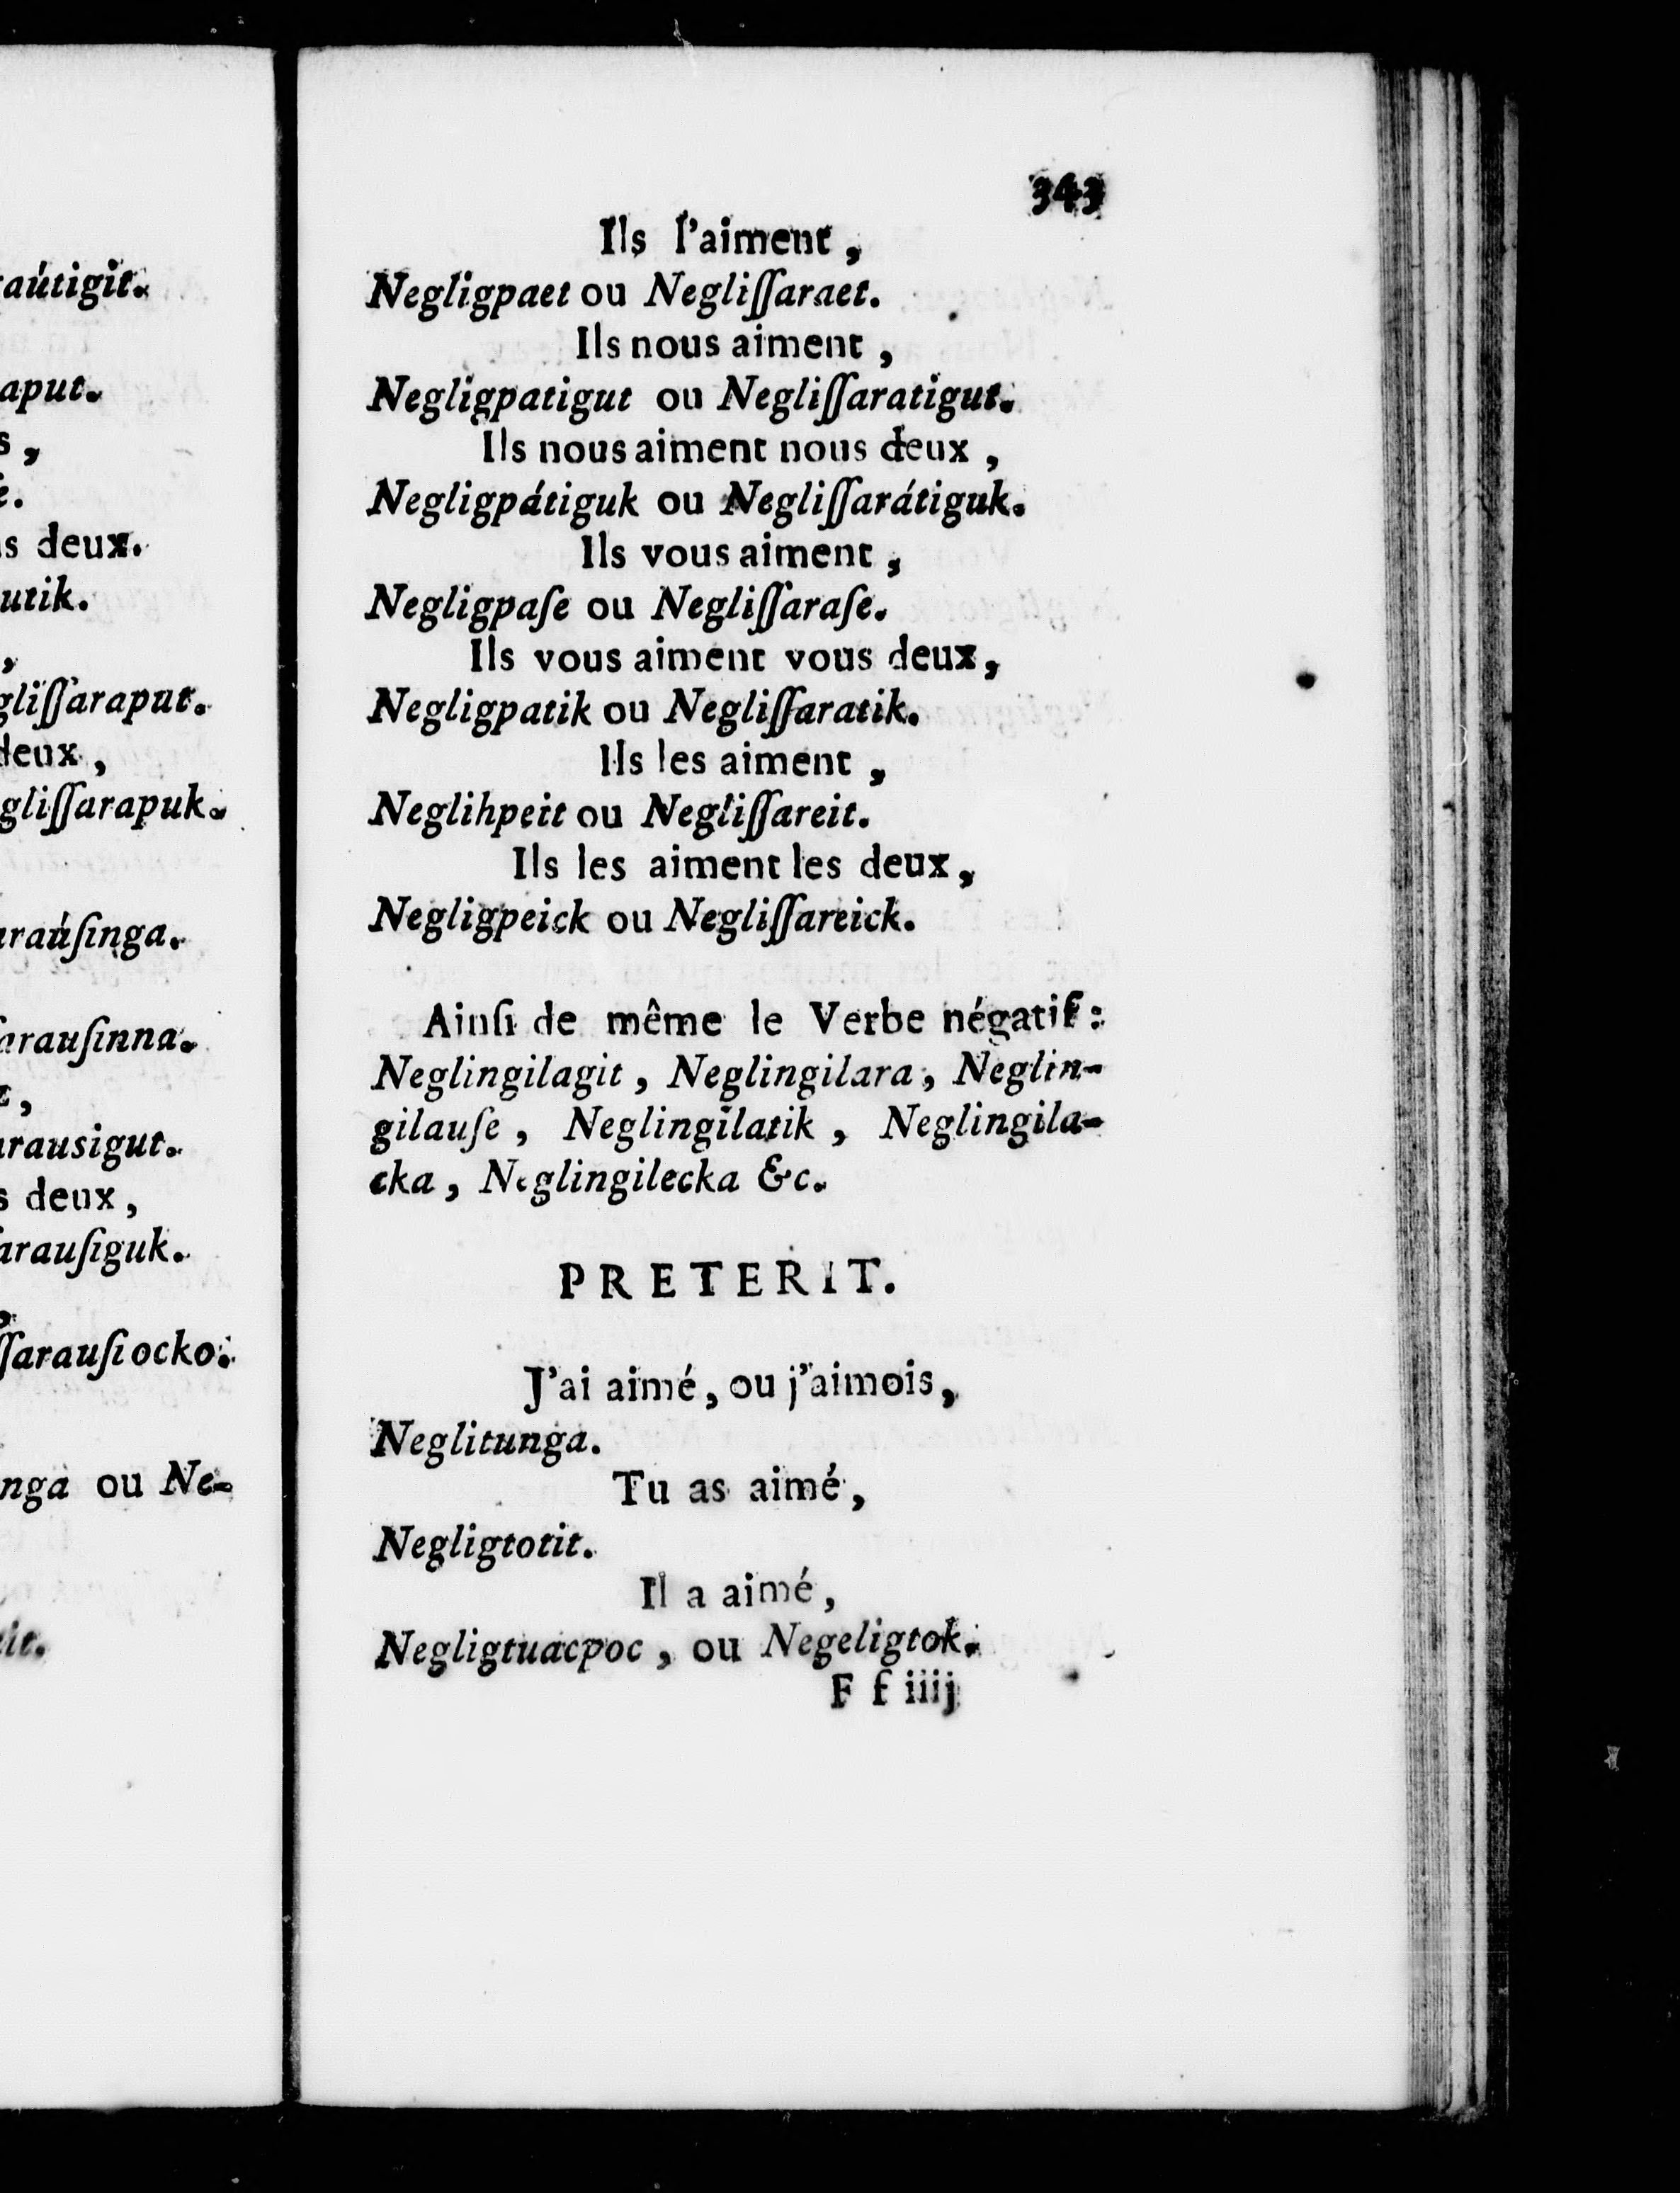 aútigit.
aput.
s,
e.
s deux.
utik.
,
gliſſaraput.
deux,
gliſſarapuk.
raúſinga.
arauſinna.
,
rausigut.
s deux,
arauſiguk.
,
ſſarauſiocko.
nga ou Ne-
it.
343
Ils l'aiment,
Negligpaet ou Negliſſaraet.
Ils nous aiment,
Negligpatigut ou Negliſſaratigut.
Ils nous aiment nous deux,
Negligpátiguk ou Negliſſarátiguk.
Ils vous aiment,
Negligpaſe ou Negliſſaraſe.
Ils vous aiment vous deux,
Negligpatik ou Negliſſaratik.
Ils les aiment,
Neglihpeit ou Negliſſareit.
Ils les aiment les deux,
Negligpeick ou Negliſſareick.
Ainſi de même le Verbe négatif:
Neglingilagit, Neglingilara, Neglin-
gilauſe, Neglingilatik, Neglingila-
cka, Neglingilecka &c.
PRETERIT.
J'ai aimé, ou j'aimois,
Neglitunga.
Tu as aimé,
Negligtotit.
Il a aimé,
Negligtuacpoc, ou Negeligtok.
F f iiij